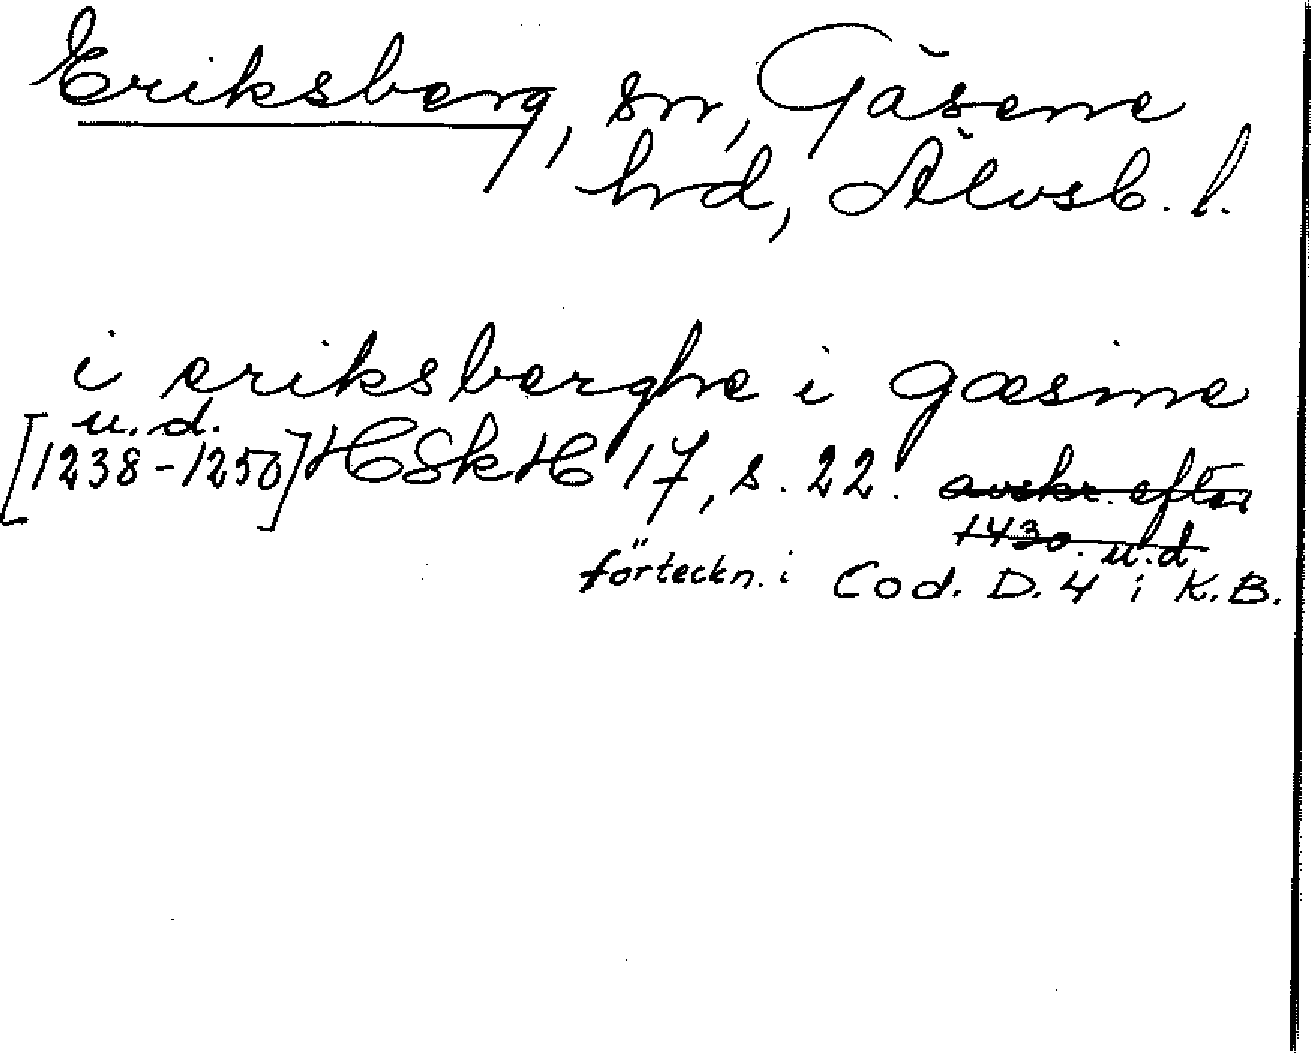 Eriksberg, sn, Gäsene
hrd, Älvsb. l.
i eriksberghe i gæsine
u.d.
[1238-1250] HSkH 17, s. 22. avskr. efter
1430. u.d
förteckn. i Cod. D. 4 i K.B.